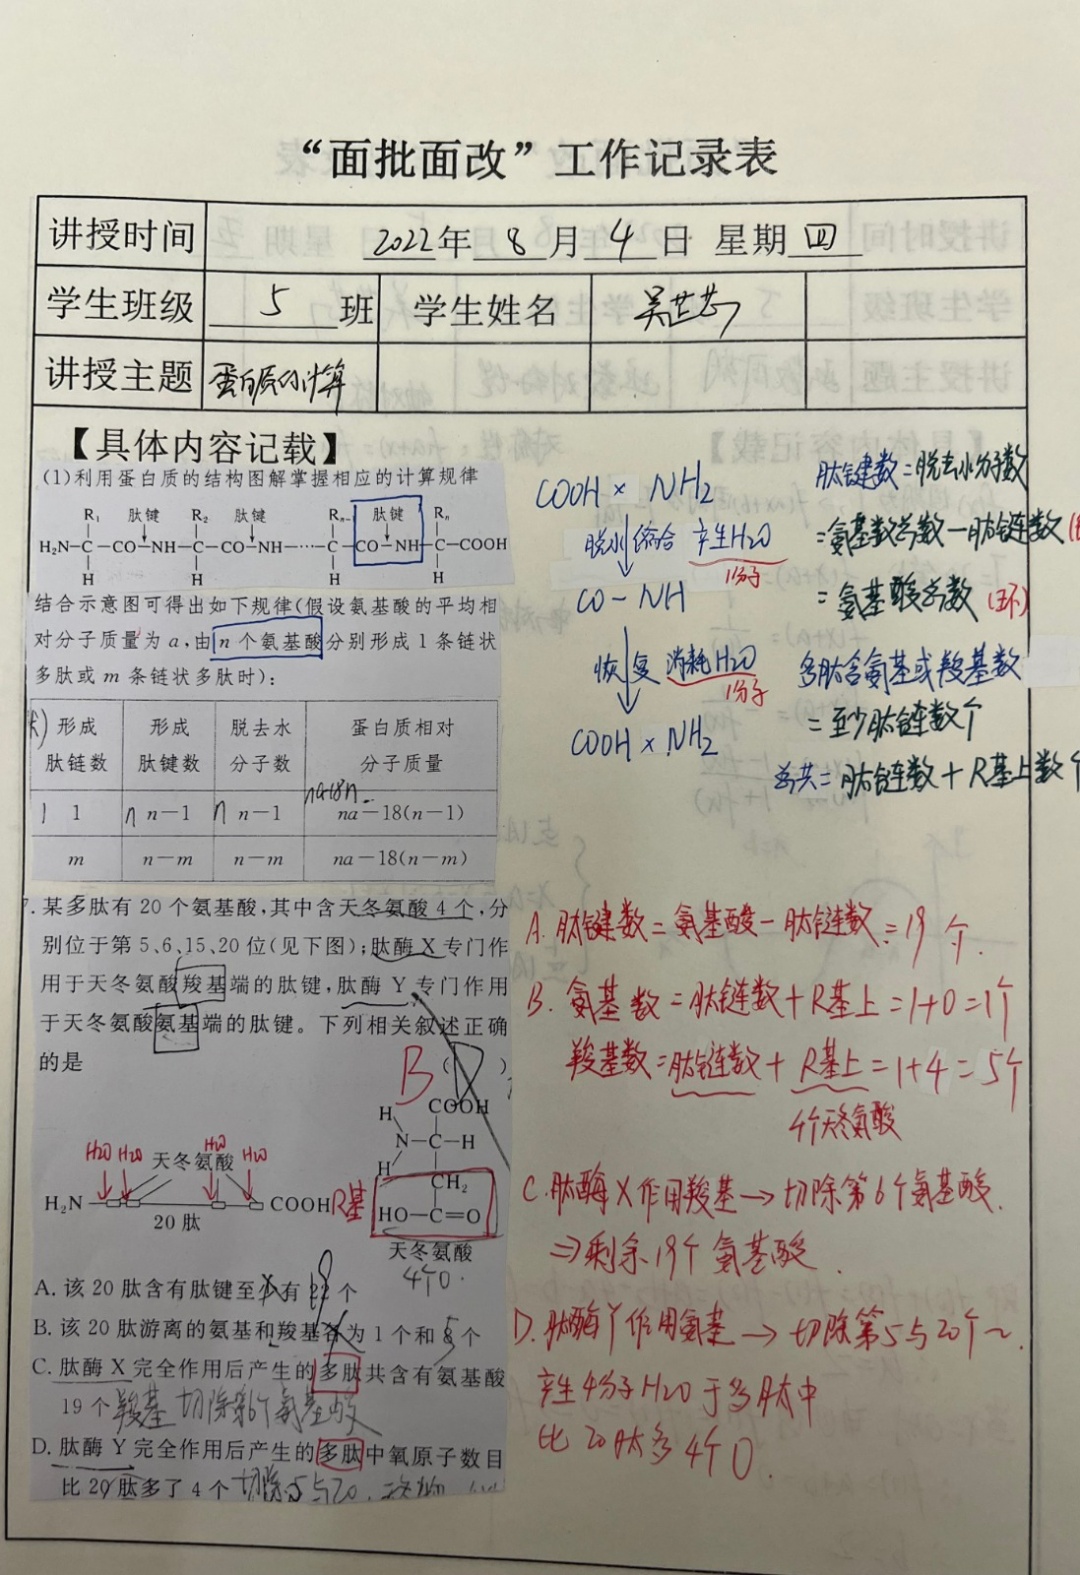 “面批面改”工作记录表
讲授时间 2022年 8 月 4 日 星期四
学生班级 5 班 学生姓名
讲授主题 蛋白质的计算
【具体内容记载】
(1)利用蛋白质的结构图解掌握相应的计算规律
R₁ 肽键 R₂ 肽键 Rₙ₋ 肽键 Rₙ
H₂N—C—CO—NH—C—CO—NH—……—C—CO—NH—C—COOH
H H H H
结合示意图可得出如下规律(假设氨基酸的平均相
对分子质量为 a,由 n 个氨基酸分别形成 1 条链状
多肽或 m 条链状多肽时):
形成肽链数 形成肽键数 脱去水分子数 蛋白质相对分子质量
1 1 n n−1 n n−1 na−18(n−1)
m n−m n−m na−18(n−m)
COOH × NH₂
脱水 缩合 产生H₂O
1分子
CO−NH
恢复 消耗H₂O
1分子
COOH × NH₂
肽键数=脱去水分子数
=氨基数总数−肽链数
=氨基酸总数 (环)
多肽含氨基或羧基数
=至少肽链数个
总共=肽链数+R基上数个
7.某多肽有 20 个氨基酸,其中含天冬氨酸 4 个,分
别位于第 5、6、15、20 位(见下图);肽酶 X 专门作
用于天冬氨酸羧基端的肽键,肽酶 Y 专门作用
于天冬氨酸氨基端的肽键。下列相关叙述正确
的是 ( )
B D
H₂O H₂O H₂O H₂O
天冬氨酸
H₂N COOH
20 肽
H COOH
N—C—H
H CH₂
R基 HO—C=O
天冬氨酸
4个O.
A. 该 20 肽含有肽键至少有 22 个
19
B. 该 20 肽游离的氨基和羧基各为 1 个和 5 个
C. 肽酶 X 完全作用后产生的多肽共含有氨基酸
19 个 羧基 切除第6个氨基酸
D. 肽酶 Y 完全作用后产生的多肽中氧原子数目
比 20 肽多了 4 个 切除5与20.
A. 肽键数=氨基酸−肽链数=19个.
B. 氨基数=肽链数+R基上=1+0=1个
羧基数=肽链数+R基上=1+4=5个
4个天冬氨酸
C. 肽酶X作用羧基→切除第6个氨基酸.
⇒剩余19个氨基酸.
D. 肽酶Y作用氨基→切除第5与20个~.
产生4分子H₂O于多肽中
比20肽多4个O.